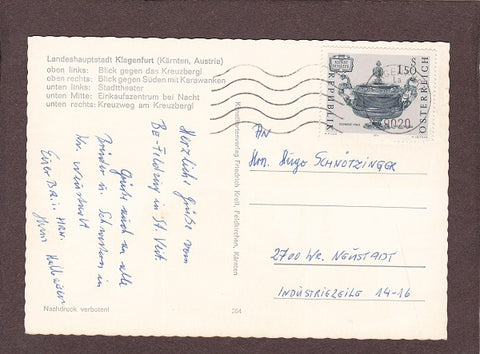 Landeshauptstadt Klagenfurt (Kärnten, Austria)
oben links: Blick gegen das Kreuzbergl
oben rechts: Blick gegen Süden mit Karawanken
unten links: Stadttheater
unten Mitte: Einkaufszentrum bei Nacht
unten rechts: Kreuzweg am Kreuzbergl
Herzliche Grüße vom
in St. Veit.
Grüße auch an alle
Brüder u. Schwestern in
Wr. Neustadt
Euer
Hans
Nachdruck verboten!
264
Kunstkartenverlag Friedrich Kreit, Feldkirchen, Kärnten
REPUBLIK
ÖSTERREICH
S 1.50
9020
AN
Hrn. Hugo SCHNÖTZINGER
2700 WR. NEUSTADT
INDUSTRIEZEILE 14-16